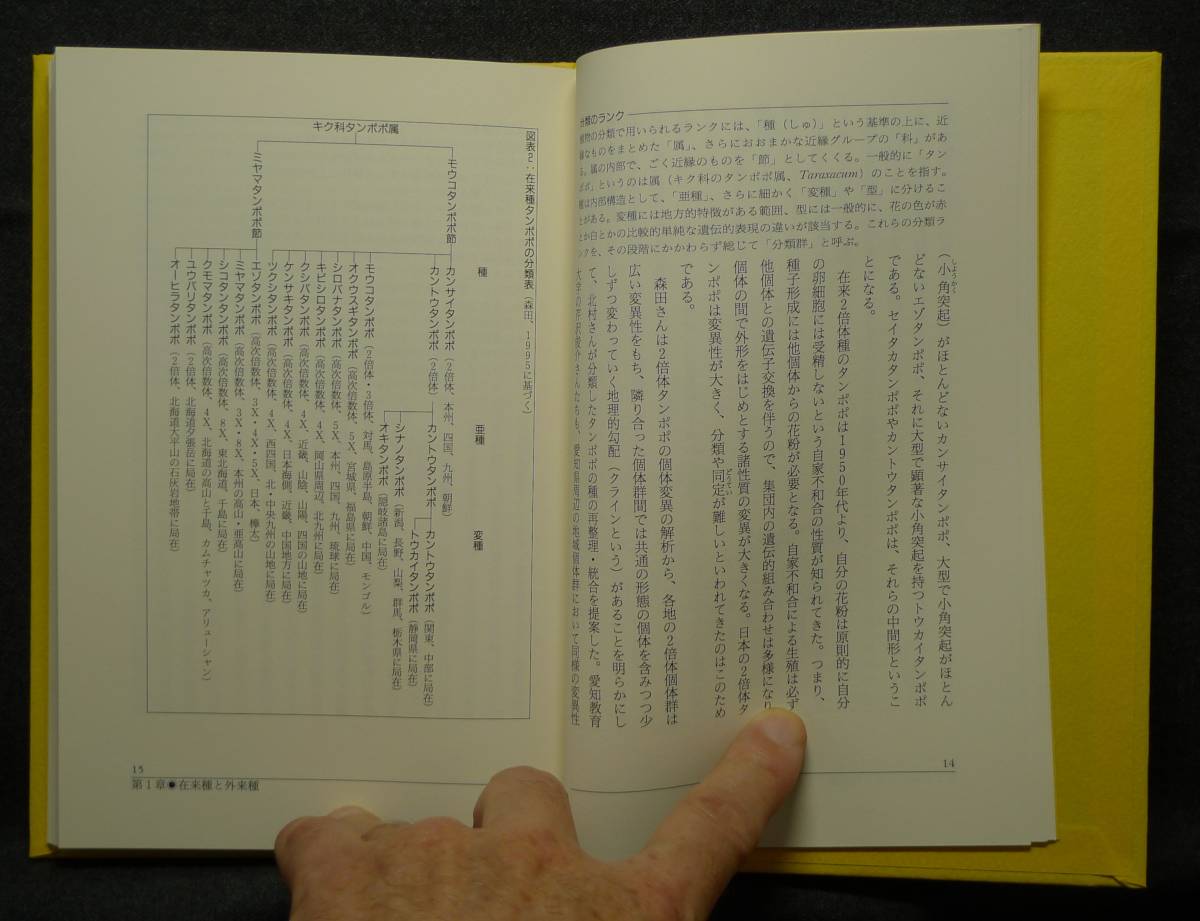 分類のランク
物の分類で用いられるランクには、「種（しゅ）」という基準の上に、近
なものをまとめた「属」、さらにおおまかな近縁グループの「科」があ
る。属の内部で、ごく近縁のものを「節」としてくくる。一般的に「タン
ポポ」というのは属（キク科のタンポポ属、Taraxacum）のことを指す。
は内部構造として、「亜種」、さらに細かく「変種」や「型」に分けるこ
とがある。変種には地方的特徴がある範囲、型には一般的に、花の色が赤
とか白とかの比較的単純な遺伝的表現の違いが該当する。これらの分類ラ
ンクを、その段階にかかわらず総じて「分類群」と呼ぶ。
（小角突起）がほとんどないカンサイタンポポ、大型で小角突起がほとん
どないエゾタンポポ、それに大型で顕著な小角突起を持つトウカイタンポポ
である。セイタカタンポポやカントウタンポポは、それらの中間形というこ
とになる。
在来2倍体種のタンポポは1950年代より、自分の花粉は原則的に自分
の卵細胞には受精しないという自家不和合の性質が知られてきた。つまり、
種子形成には他個体からの花粉が必要となる。自家不和合による生殖は必ず
他個体との遺伝子交換を伴うので、集団内の遺伝的組み合わせは多様になり
個体の間で外形をはじめとする諸性質の変異が大きくなる。日本の2倍体タ
ンポポは変異性が大きく、分類や同定が難しいといわれてきたのはこのため
である。
森田さんは2倍体タンポポの個体変異の解析から、各地の2倍体個体群は
広い変異性をもち、隣り合った個体群間では共通の形態の個体を含みつつ少
しずつ変わっていく地理的勾配（クラインという）があることを明らかにし
て、北村さんが分類したタンポポの種の再整理・統合を提案した。愛知教育
14
図表2：在来種タンポポの分類表（森田、1995に基づく）
キク科タンポポ属
モウコタンポポ節
ミヤマタンポポ節
種
亜種
変種
カンサイタンポポ（2倍体、本州、四国、九州、朝鮮）
カントウタンポポ（2倍体）
カントウタンポポ
カントウタンポポ（関東、中部に局在）
トウカイタンポポ（静岡県に局在）
シナノタンポポ（新潟、長野、山梨、群馬、栃木県に局在）
オキタンポポ（隠岐諸島に局在）
モウコタンポポ（2倍体・3倍体、対馬、島原半島、朝鮮、中国、モンゴル）
オクウスギタンポポ（高次倍数体、5X、宮城県、福島県に局在）
シロバナタンポポ（高次倍数体、5X、本州、四国、九州、琉球に局在）
キビシロタンポポ（高次倍数体、4X、岡山県周辺、北九州に局在）
クシバタンポポ（高次倍数体、4X、近畿、山陰、山陽、四国の山地に局在）
ケンサキタンポポ（高次倍数体、4X、日本海側、近畿、中国地方に局在）
ツクシタンポポ（高次倍数体、4X、西四国、北・中央九州の山地に局在）
エゾタンポポ（高次倍数体、3X・4X・5X、日本、樺太）
ミヤマタンポポ（高次倍数体、3X・8X、本州の高山・亜高山に局在）
シコタンタンポポ（高次倍数体、8X、東北海道、千島に局在）
クモマタンポポ（高次倍数体、4X、北海道の高山と千島、カムチャツカ、アリューシャン）
ユウバリタンポポ（2倍体、北海道夕張岳に局在）
オーヒラタンポポ（2倍体、北海道大平山の石灰岩地帯に局在）
15
第1章●在来種と外来種